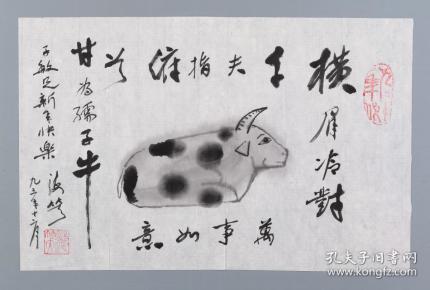 横
眉冷對
千夫指
俯首
甘为孺子牛
萬事如意
子敏兄新年快樂
九六年十二月
孔夫子旧书网
kongfz.com